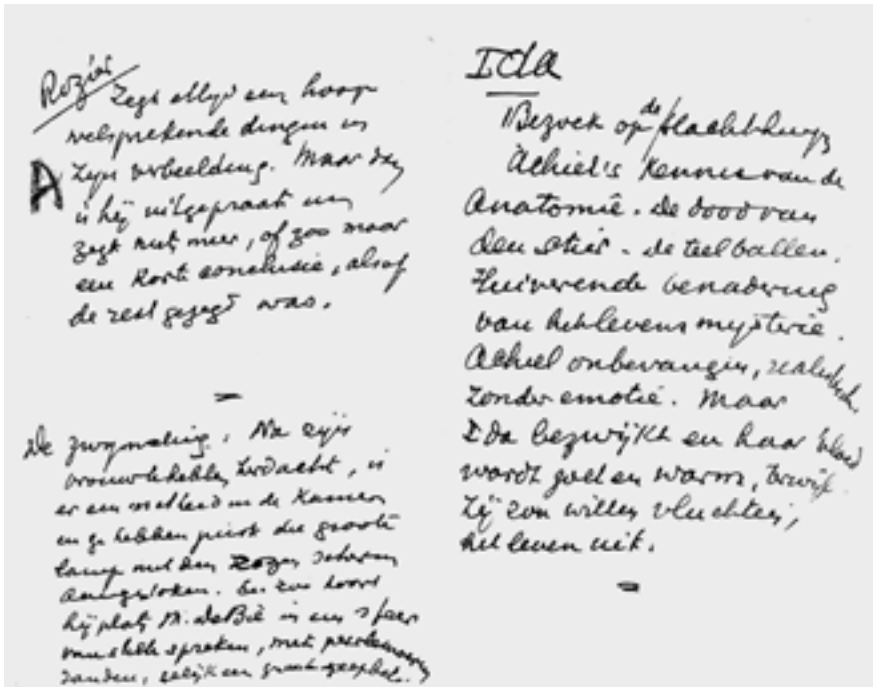 Rozier
Zegt altijd een hoop
welsprekende dingen in
A zijn verbeelding. Maar dan
is hij uitgepraat en
zegt niets meer, of zoo maar
een korte conclusie, alsof
de rest gezegd was.
De zwijmeling. Na zijn
vrouw te hebben, is
er een in de Kamer
en ge hebben juist die groote
lamp met den rozen
aangestoken. En zoo hoort
hij plots M. de Bie in een sfeer
spreken, met
tanden, gelijk een
Ida
Bezoek op de slachthuys
Achiel's Kennis van de
Anatomie. De dood van
den stier. De teelballen.
Huiverende benadering
van het levensmysterie.
Achiel onbevangen,
zonder emotie. Maar
Ida bezwijkt en haar bloed
wordt goed en warm, terwijl
zij zou willen vluchten,
het leven uit.